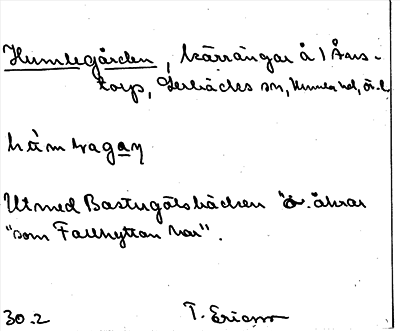 Humlegården, kärrängar å 1 Års-
torp, Lerbäcks sn, Kumla hd, Ör. l.
hùmlagaɳ
Utmed Bastugölsbäcken "ö. åkrar
"som Fallhyttan har".
30.2 T. Ericsson